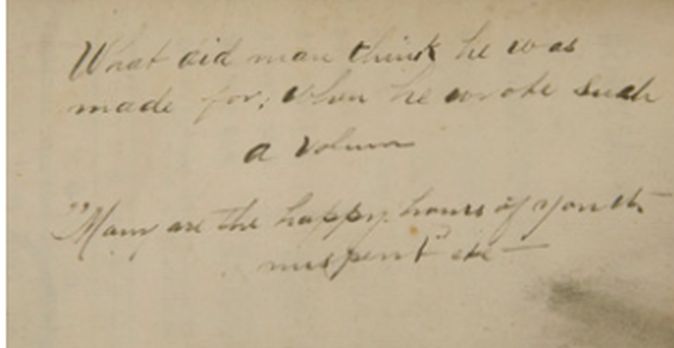 What did man think he was
made for; when he wrote such
a volum
"Many are the happy hours of youth
mispent" etc —